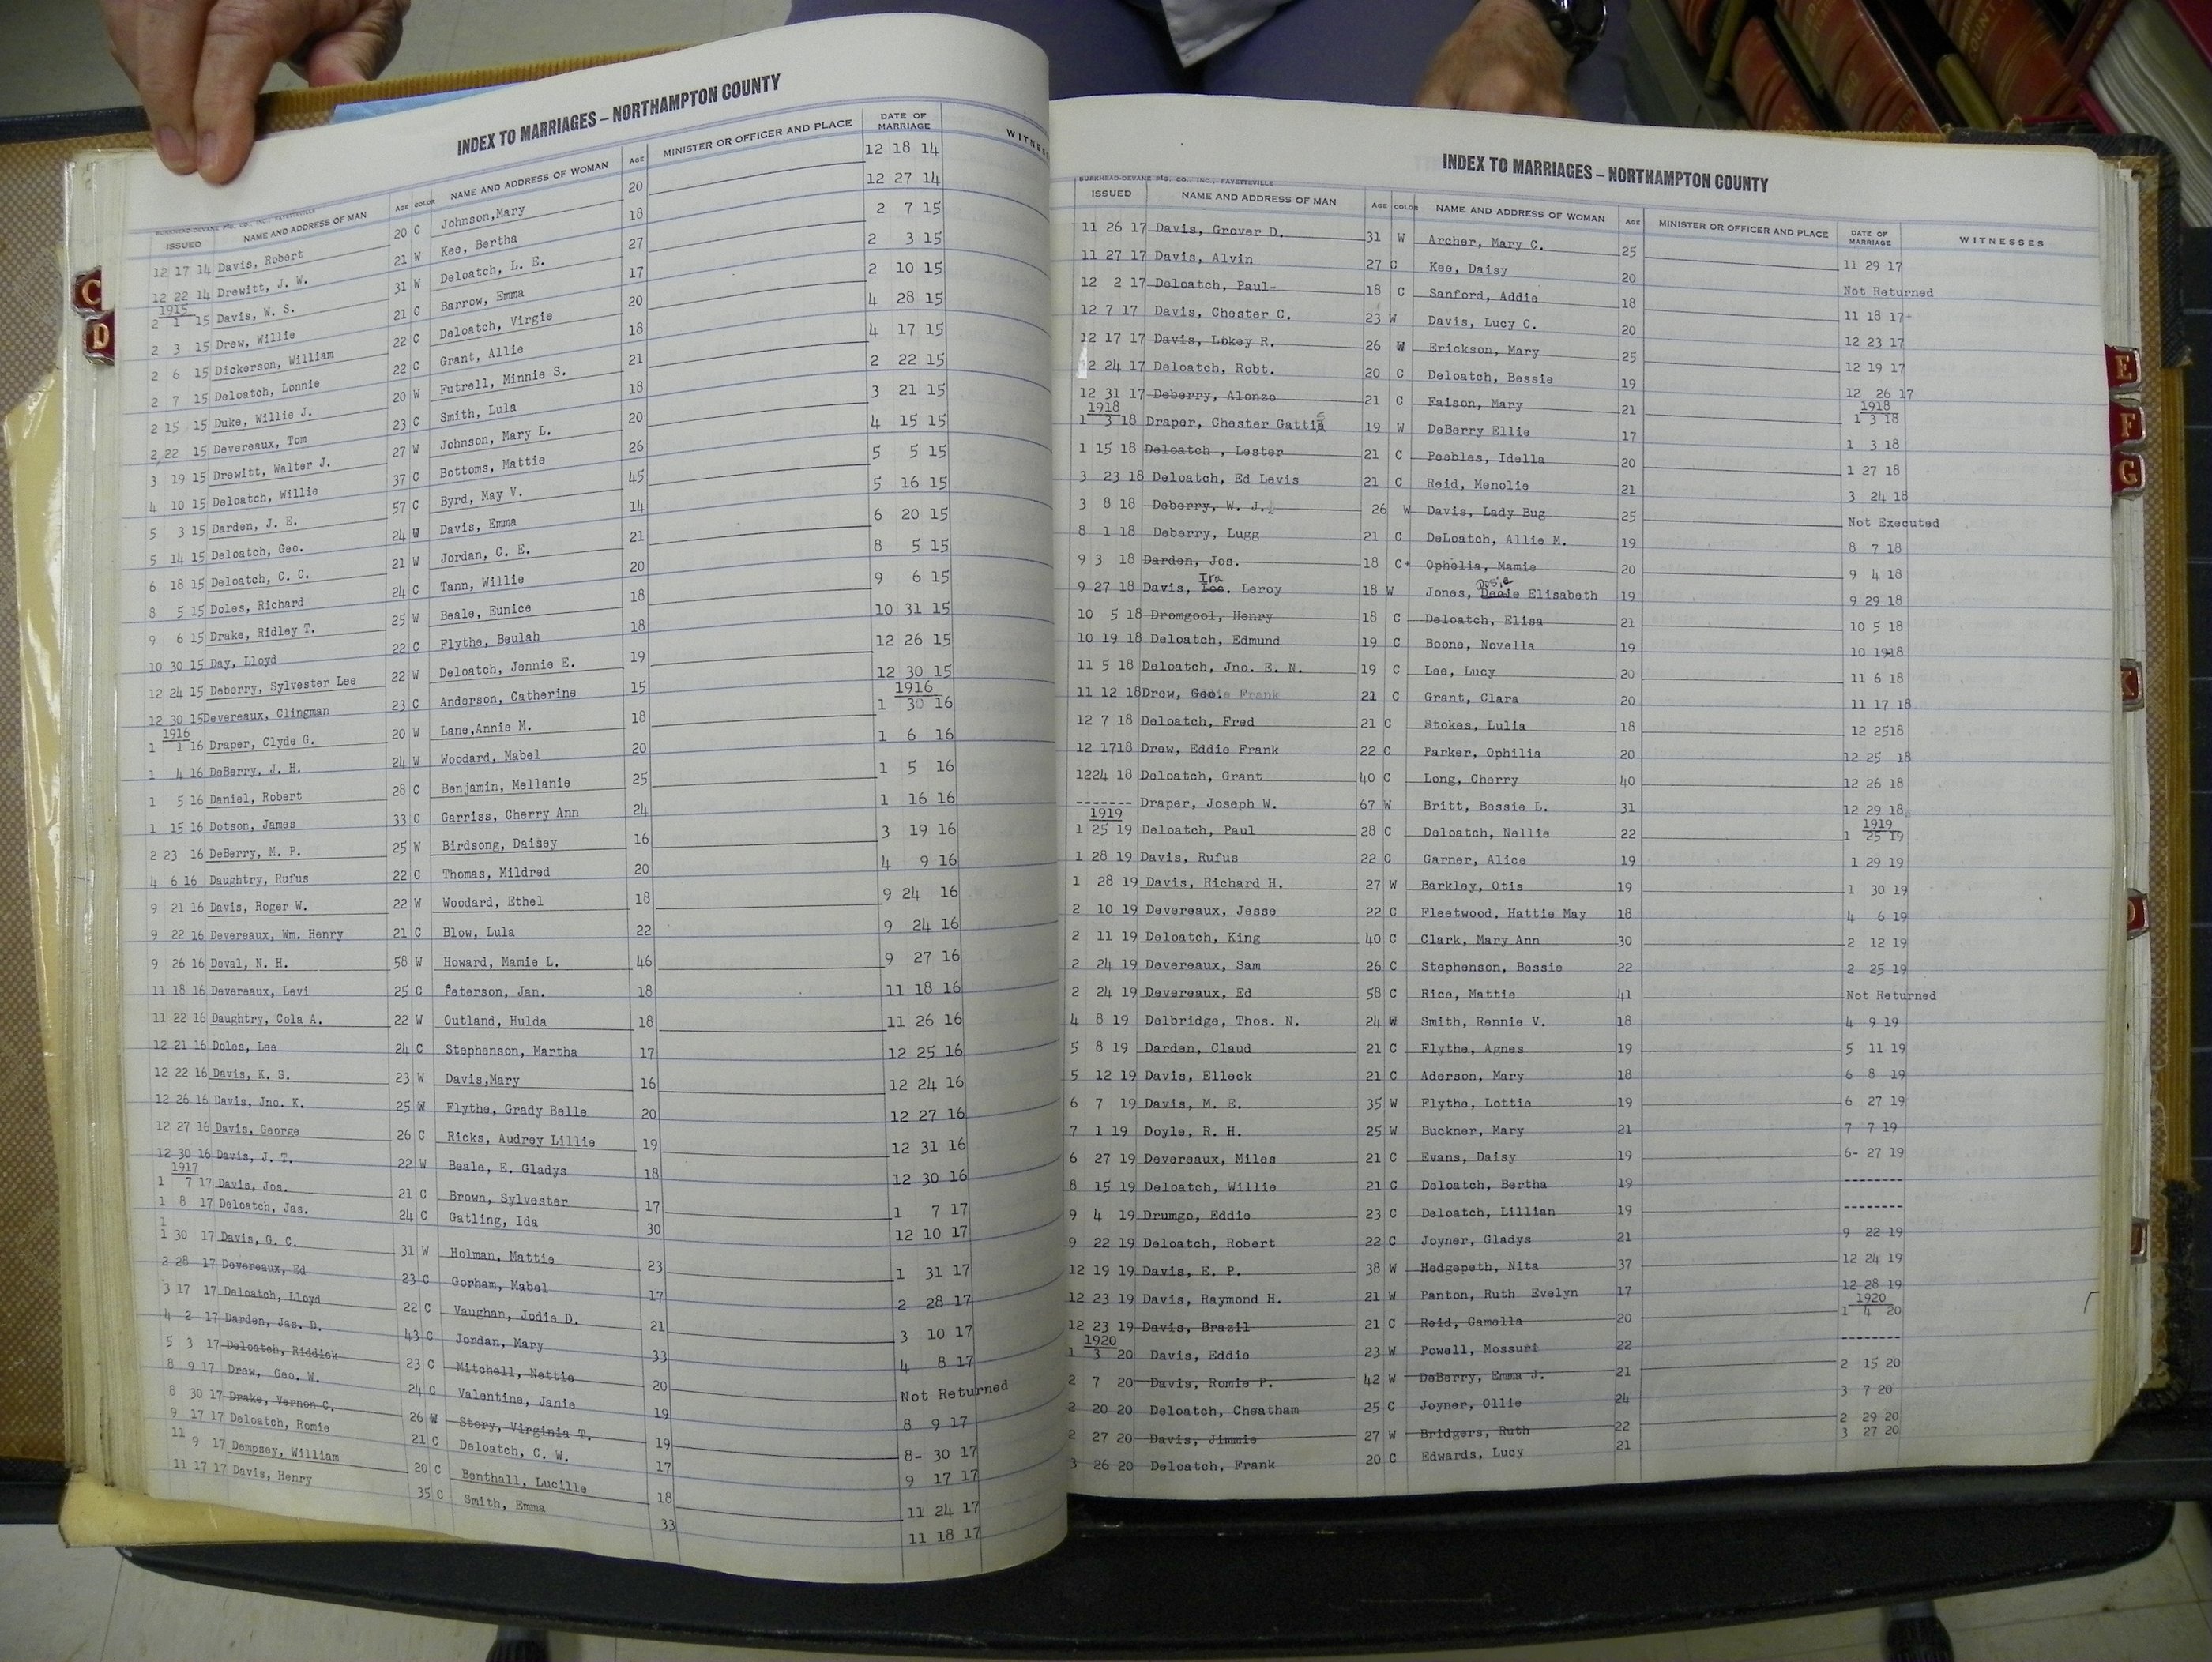 INDEX TO MARRIAGES – NORTHAMPTON COUNTY
BURKHEAD-DEVANE PTG. CO., INC., FAYETTEVILLE
ISSUED NAME AND ADDRESS OF MAN AGE COLOR NAME AND ADDRESS OF WOMAN AGE MINISTER OR OFFICER AND PLACE DATE OF MARRIAGE
12 17 14 Davis, Robert 20 C Johnson,Mary 20 12 18 14
12 22 14 Drewitt, J. W. 21 W Kee, Bertha 18 12 27 14
1915
2 1 15 Davis, W. S. 31 W Deloatch, L. E. 27 2 7 15
2 3 15 Drew, Willie 21 C Barrow, Emma 17 2 3 15
2 6 15 Dickerson, William 22 C Deloatch, Virgie 20 2 10 15
2 7 15 Deloatch, Lonnie 22 C Grant, Allie 18 4 28 15
2 15 15 Duke, Willie J. 20 W Futrell, Minnie S. 21 4 17 15
2 22 15 Devereaux, Tom 23 C Smith, Lula 18 2 22 15
3 19 15 Drewitt, Walter J. 27 W Johnson, Mary L. 20 3 21 15
4 10 15 Deloatch, Willie 37 C Bottoms, Mattie 26 4 15 15
5 3 15 Darden, J. E. 57 C Byrd, May V. 45 5 5 15
5 14 15 Deloatch, Geo. 24 W Davis, Emma 14 5 16 15
6 18 15 Deloatch, C. C. 21 W Jordan, C. E. 21 6 20 15
8 5 15 Doles, Richard 24 C Tann, Willie 20 8 5 15
9 6 15 Drake, Ridley T. 25 W Beale, Eunice 18 9 6 15
10 30 15 Day, Lloyd 22 C Flythe, Beulah 18 10 31 15
12 24 15 Deberry, Sylvester Lee 22 W Deloatch, Jennie E. 19 12 26 15
12 30 15 Devereaux, Clingman 23 C Anderson, Catherine 15 12 30 15
1916 1916
1 1 16 Draper, Clyde G. 20 W Lane,Annie M. 18 1 30 16
1 4 16 DeBerry, J. H. 24 W Woodard, Mabel 20 1 6 16
1 5 16 Daniel, Robert 28 C Benjamin, Mellanie 25 1 5 16
1 15 16 Dotson, James 33 C Garriss, Cherry Ann 24 1 16 16
2 23 16 DeBerry, M. P. 25 W Birdsong, Daisey 16 3 19 16
4 6 16 Daughtry, Rufus 22 C Thomas, Mildred 20 4 9 16
9 21 16 Davis, Roger W. 22 W Woodard, Ethel 18 9 24 16
9 22 16 Devereaux, Wm. Henry 21 C Blow, Lula 22 9 24 16
9 26 16 Deval, N. H. 58 W Howard, Mamie L. 46 9 27 16
11 18 16 Devereaux, Levi 25 C Peterson, Jan. 18 11 18 16
11 22 16 Daughtry, Cola A. 22 W Outland, Hulda 18 11 26 16
12 21 16 Doles, Lee 24 C Stephenson, Martha 17 12 25 16
12 22 16 Davis, K. S. 23 W Davis,Mary 16 12 24 16
12 26 16 Davis, Jno. K. 25 W Flythe, Grady Belle 20 12 27 16
12 27 16 Davis, George 26 C Ricks, Audrey Lillie 19 12 31 16
12 30 16 Davis, J. T. 22 W Beale, E. Gladys 18 12 30 16
1917
1 7 17 Davis, Jos. 21 C Brown, Sylvester 17 1 7 17
1 8 17 Deloatch, Jas. 24 C Gatling, Ida 30 12 10 17
1
1 30 17 Davis, G. C. 31 W Holman, Mattie 23 1 31 17
2 28 17 Devereaux, Ed 23 C Gorham, Mabel 17 2 28 17
3 17 17 Deloatch, Lloyd 22 C Vaughan, Jodie D. 21 3 10 17
4 2 17 Darden, Jas. D. 43 C Jordan, Mary 33 4 8 17
5 3 17 Deloatch, Riddick 23 C Mitchell, Nettie 20 Not Returned
8 9 17 Drew, Geo. W. 24 C Valentine, Janie 19 8 9 17
8 30 17 Drake, Vernon C. 26 W Story, Virginia T. 19 8- 30 17
9 17 17 Deloatch, Romie 21 C Deloatch, C. W. 17 9 17 17
11 9 17 Dempsey, William 20 C Benthall, Lucille 18 11 24 17
11 17 17 Davis, Henry 35 C Smith, Emma 33 11 18 17
INDEX TO MARRIAGES – NORTHAMPTON COUNTY
BURKHEAD-DEVANE PTG. CO., INC., FAYETTEVILLE
ISSUED NAME AND ADDRESS OF MAN AGE COLOR NAME AND ADDRESS OF WOMAN AGE MINISTER OR OFFICER AND PLACE DATE OF MARRIAGE WITNESSES
11 26 17 Davis, Grover D. 31 W Archer, Mary C. 25 11 29 17
11 27 17 Davis, Alvin 27 C Kee, Daisy 20 Not Returned
12 2 17 Deloatch, Paul- 18 C Sanford, Addie 18 11 18 17
12 7 17 Davis, Chester C. 23 W Davis, Lucy C. 20 12 23 17
12 17 17 Davis, Lokey R. 26 W Erickson, Mary 25 12 19 17
12 24 17 Deloatch, Robt. 20 C Deloatch, Bessie 19 12 26 17
12 31 17 Deberry, Alonzo 21 C Faison, Mary 21 1918 1 3 18
1918
1 3 18 Draper, Chester Gattis 19 W DeBerry Ellie 17 1 3 18
1 15 18 Deloatch , Lester 21 C Peebles, Idella 20 1 27 18
3 23 18 Deloatch, Ed Levis 21 C Reid, Menolie 21 3 24 18
3 8 18 Deberry, W. J. 26 W Davis, Lady Bug 25 Not Executed
8 1 18 Deberry, Lugg 21 C DeLoatch, Allie M. 19 8 7 18
9 3 18 Darden, Jos. 18 C Ophelia, Mamie 20 9 4 18
9 27 18 Davis, Ira Leroy 18 W Jones, Dosie Elisabeth 19 9 29 18
10 5 18 Dromgool, Henry 18 C Deloatch, Elisa 21 10 5 18
10 19 18 Deloatch, Edmund 19 C Boone, Novella 19 10 1918
11 5 18 Deloatch, Jno. E. N. 19 C Lee, Lucy 20 11 6 18
11 12 18 Drew, Geo. Frank 21 C Grant, Clara 20 11 17 18
12 7 18 Deloatch, Fred 21 C Stokes, Lulia 18 12 2518
12 1718 Drew, Eddie Frank 22 C Parker, Ophilia 20 12 25 18
1224 18 Deloatch, Grant 40 C Long, Cherry 40 12 26 18
------- Draper, Joseph W. 67 W Britt, Bessie L. 31 12 29 18
1919 1919
1 25 19 Deloatch, Paul 28 C Deloatch, Nellie 22 1 25 19
1 28 19 Davis, Rufus 22 C Garner, Alice 19 1 29 19
1 28 19 Davis, Richard H. 27 W Barkley, Otis 19 1 30 19
2 10 19 Devereaux, Jesse 22 C Fleetwood, Hattie May 18 4 6 19
2 11 19 Deloatch, King 40 C Clark, Mary Ann 30 2 12 19
2 24 19 Devereaux, Sam 26 C Stephenson, Bessie 22 2 25 19
2 24 19 Devereaux, Ed 58 C Rice, Mattie 41 Not Returned
4 8 19 Delbridge, Thos. N. 24 W Smith, Rennie V. 18 4 9 19
5 8 19 Darden, Claud 21 C Flythe, Agnes 19 5 11 19
5 12 19 Davis, Elleck 21 C Aderson, Mary 18 6 8 19
6 7 19 Davis, M. E. 35 W Flythe, Lottie 19 6 27 19
7 1 19 Doyle, R. H. 25 W Buckner, Mary 21 7 7 19
6 27 19 Devereaux, Miles 21 C Evans, Daisy 19 6- 27 19
8 15 19 Deloatch, Willie 21 C Deloatch, Bertha 19 -------
9 4 19 Drumgo, Eddie 23 C Deloatch, Lillian 19 -------
9 22 19 Deloatch, Robert 22 C Joyner, Gladys 21 9 22 19
12 19 19 Davis, E. P. 38 W Hedgepeth, Nita 37 12 24 19
12 23 19 Davis, Raymond H. 21 W Panton, Ruth Evelyn 17 12 28 19
12 23 19 Davis, Brazil 21 C Reid, Camella 20 1920 1 4 20
1920
1 3 20 Davis, Eddie 23 W Powell, Mossuri 22 -------
2 7 20 Davis, Romie P. 42 W DeBerry, Emma J. 21 2 15 20
2 20 20 Deloatch, Cheatham 25 C Joyner, Ollie 24 3 7 20
2 27 20 Davis, Jimmie 27 W Bridgers, Ruth 22 2 29 20
3 26 20 Deloatch, Frank 20 C Edwards, Lucy 21 3 27 20
C
D
E
F
G
K